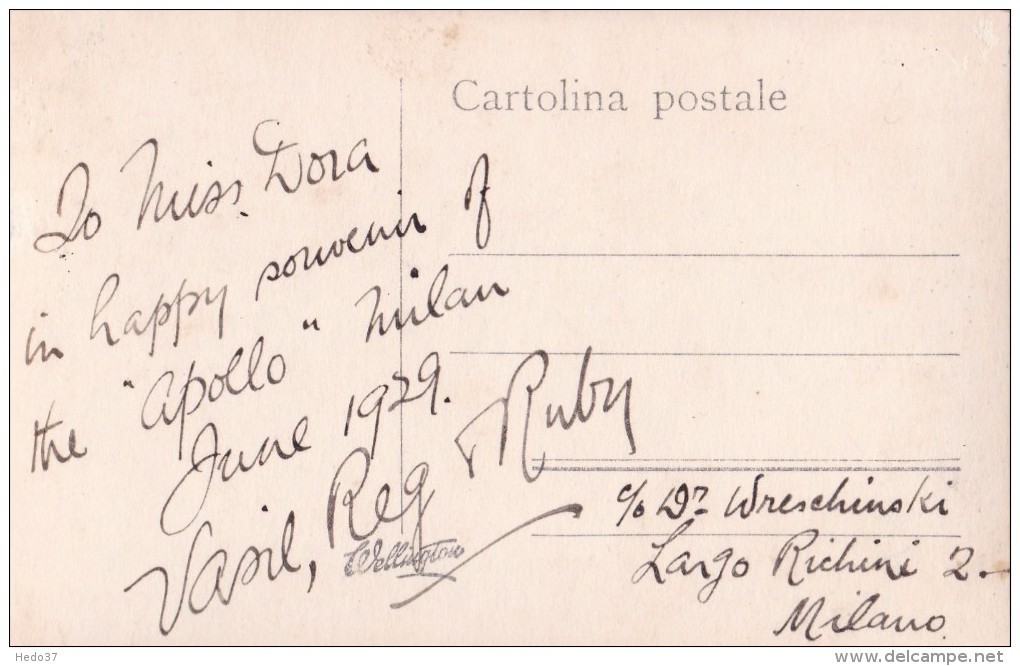 Cartolina postale
To Miss. Dora
in happy souvenir of
the "Apollo" Milan
June 1929.
Vasil, Reg & Ruby
Wellington
c/o Dr Wreschinski
Largo Richini 2.
Milano
Hedo37
www.delcampe.net